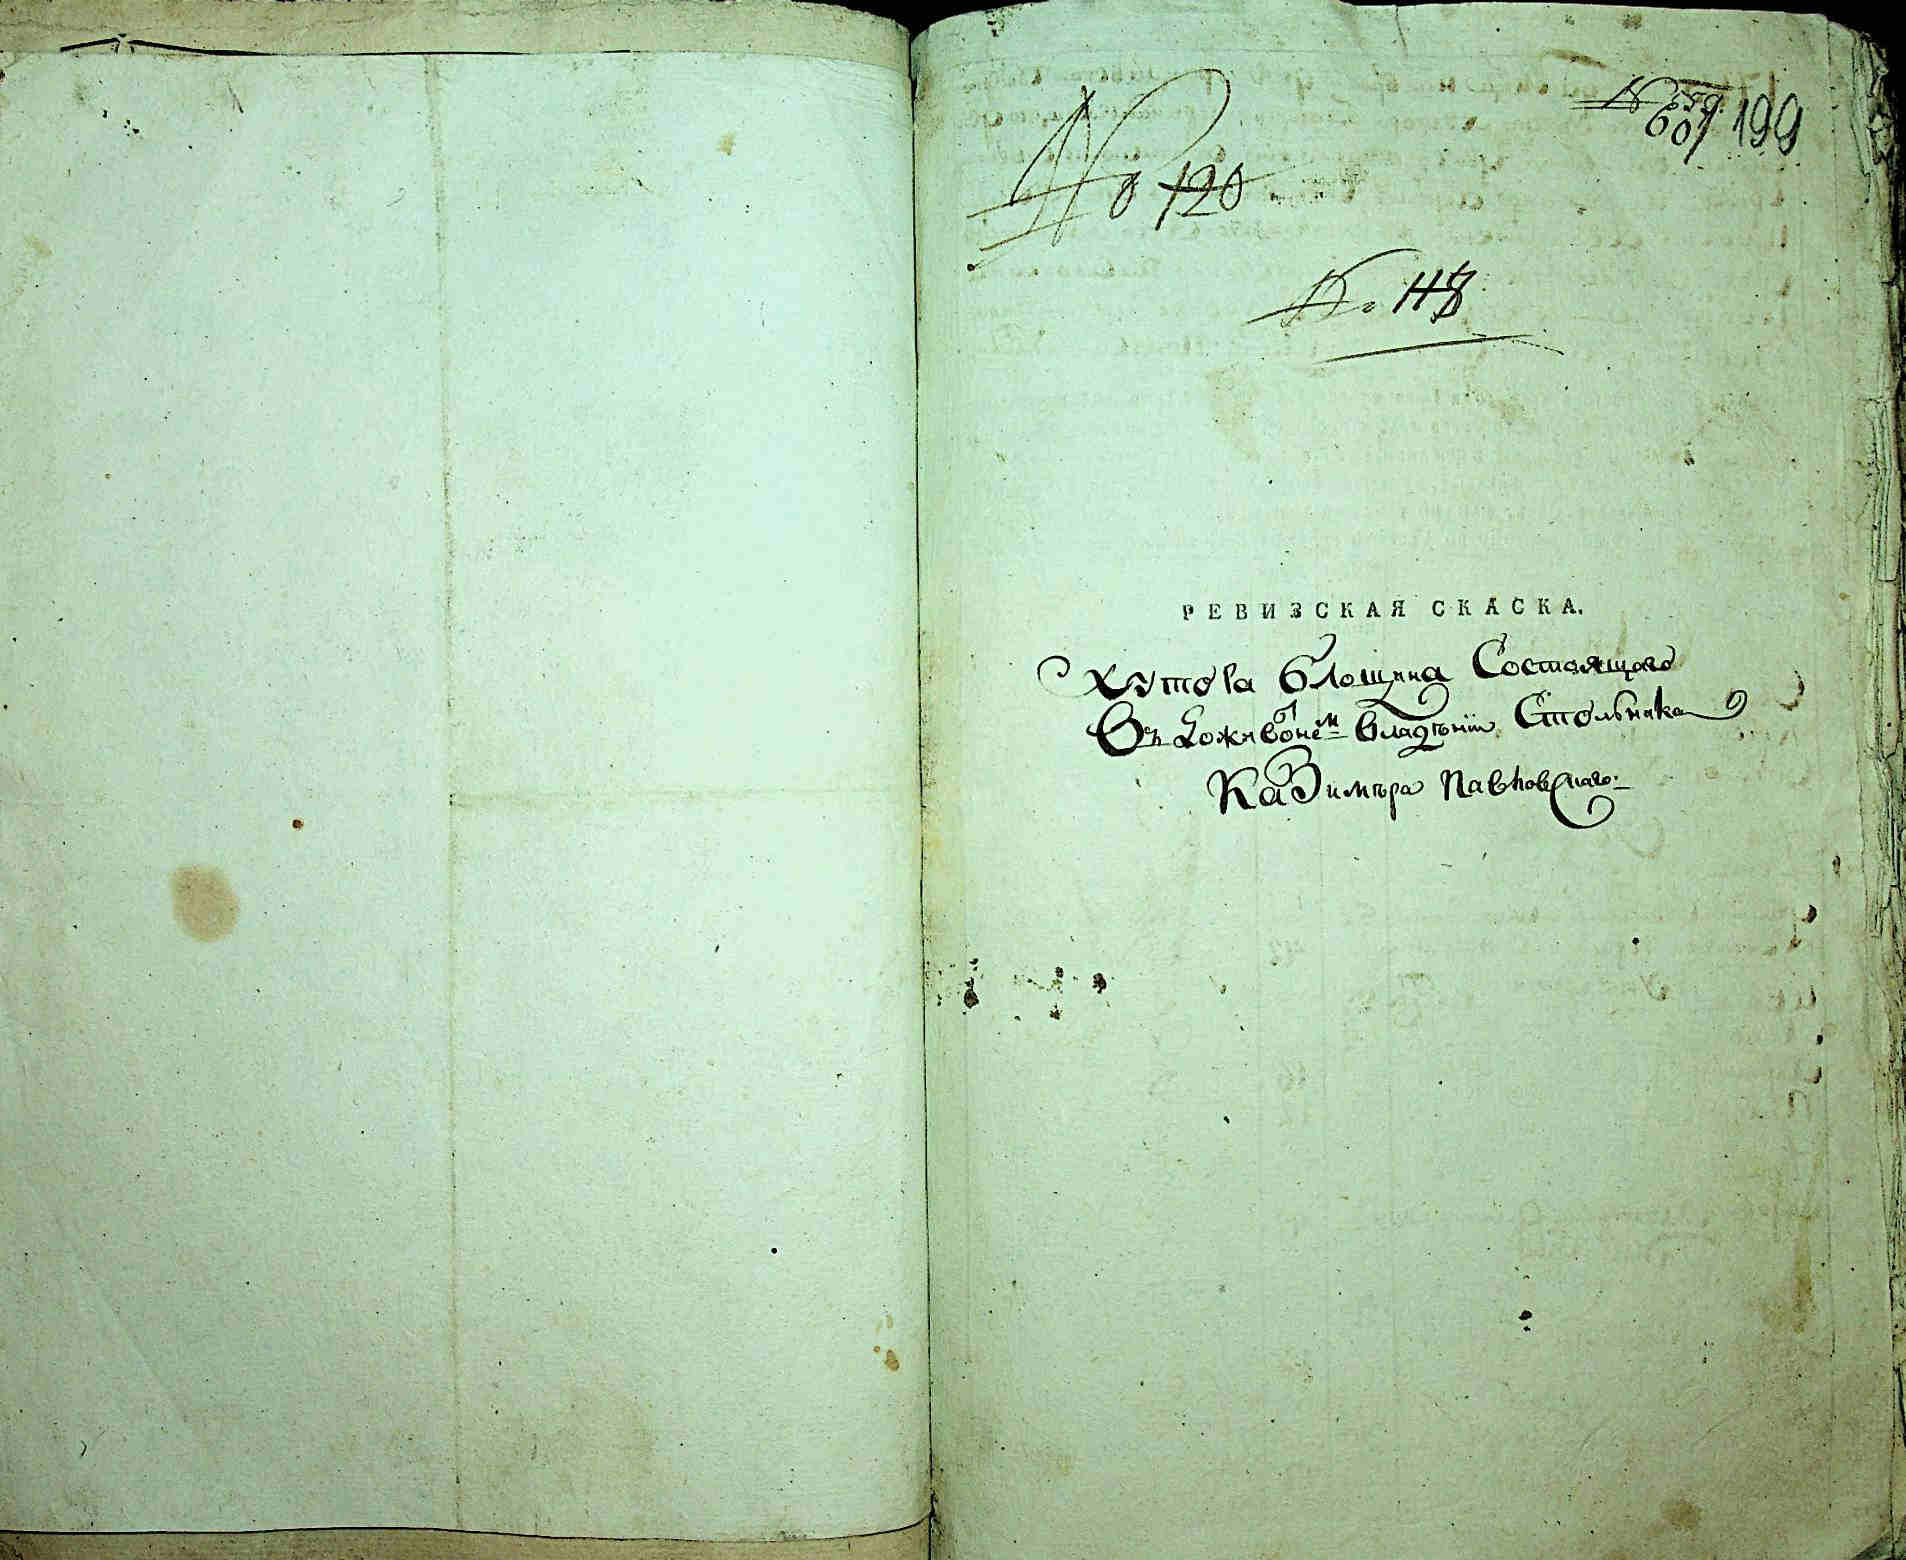 № 120
№ 659
607 199
№ 118
РЕВИЗСКАЯ СКАСКА.
Хутора Блощина Состоящаго
Въ Доживотнемъ владѣнїи Стольника
Казимѣра Павловскаго.